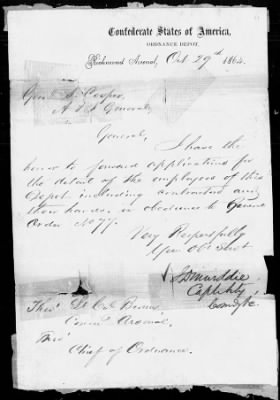 Confederate States of America,
ORDNANCE DEPOT,
Richmond Arsenal, Oct 29th 1864.
Genl S. Cooper,
A & I General,
General,
I have the
honor to forward applications for
the detail of the employees of this
Depot including contractors and
their hands, in obedience to General
Order No 77.
Very Respectfully
Your Obt Servt
Capt &c
Comdg &c
Thro' Lt Col
Arsenal
Thro'
Chief of Ordnance.